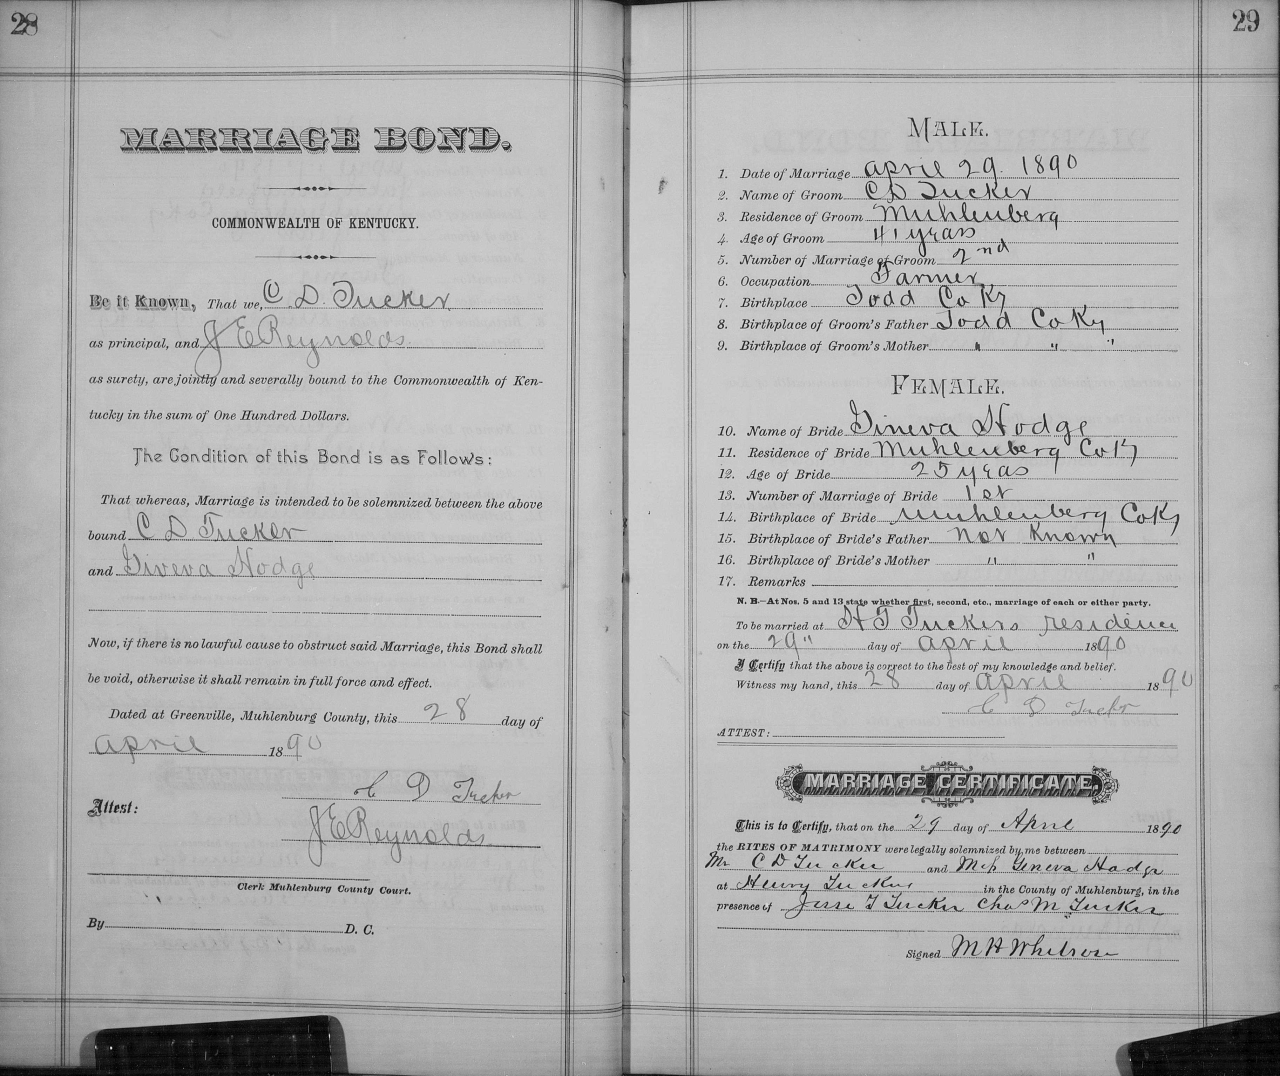 28
MARRIAGE BOND.
COMMONWEALTH OF KENTUCKY.
Be it Known, That we, C. D. Tucker
as principal, and J E Reynolds
as surety, are jointly and severally bound to the Commonwealth of Ken-
tucky in the sum of One Hundred Dollars.
The Condition of this Bond is as Follows:
That whereas, Marriage is intended to be solemnized between the above
bound C D Tucker
and Giveva Hodge
Now, if there is no lawful cause to obstruct said Marriage, this Bond shall
be void, otherwise it shall remain in full force and effect.
Dated at Greenville, Muhlenburg County, this 28 day of
April 1890
C D Tucker
Attest:
J E Reynolds
Clerk Muhlenburg County Court.
By D. C.
29
MALE.
1. Date of Marriage April 29. 1890
2. Name of Groom C D Tucker
3. Residence of Groom Muhlenberg
4. Age of Groom 41 years
5. Number of Marriage of Groom 2nd
6. Occupation Farmer
7. Birthplace Todd Co Ky
8. Birthplace of Groom's Father Todd Co Ky
9. Birthplace of Groom's Mother " " "
FEMALE.
10. Name of Bride Gineva Hodge
11. Residence of Bride Muhlenberg Co Ky
12. Age of Bride 25 yras
13. Number of Marriage of Bride 1st
14. Birthplace of Bride Muhlenberg Co Ky
15. Birthplace of Bride's Father Not Known
16. Birthplace of Bride's Mother " "
17. Remarks
N. B.—At Nos. 5 and 13 state whether first, second, etc., marriage of each or either party.
To be married at H T Tuckers residence
on the 29" day of April 1890
I Certify that the above is correct to the best of my knowledge and belief.
Witness my hand, this 28 day of April 1890
C D Tucker
ATTEST:
MARRIAGE CERTIFICATE.
This is to Certify, that on the 29 day of April 1890
the RITES OF MATRIMONY were legally solemnized by me between
Mr C D Tucker and Miss Geneva Hodge
at Henry Tuckers in the County of Muhlenburg, in the
presence of Jesse T Tucker Chas M Tucker
Signed M H